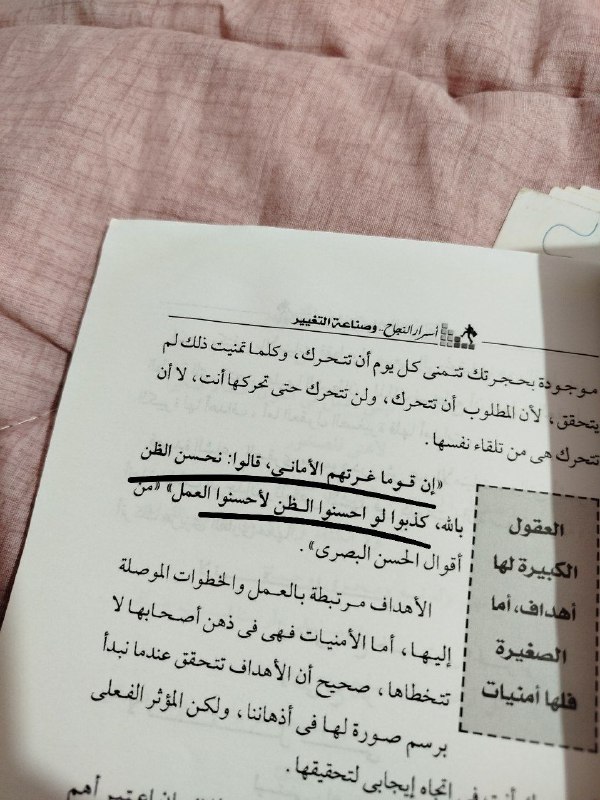 أسرار النجاح.. وصناعة التغيير
موجودة بحجرتك تتمنى كل يوم أن تتحرك، وكلما تمنيت ذلك لم
يتحقق، لأن المطلوب أن تتحرك، ولن تتحرك حتى تحركها أنت، لا أن
تتحرك هى من تلقاء نفسها.
«إن قوما غرتهم الأمانى، قالوا: نحسن الظن
بالله، كذبوا لو احسنوا الظن لأحسنوا العمل» «من
أقوال الحسن البصرى».
العقول
الكبيرة لها
أهداف، أما
الصغيرة
فلها أمنيات
الأهداف مرتبطة بالعمل والخطوات الموصلة
إليها، أما الأمنيات فهى فى ذهن أصحابها لا
تتخطاها، صحيح أن الأهداف تتحقق عندما نبدأ
برسم صورة لها فى أذهاننا، ولكن المؤثر الفعلى
فى إتجاه إيجابى لتحقيقها.
أهم